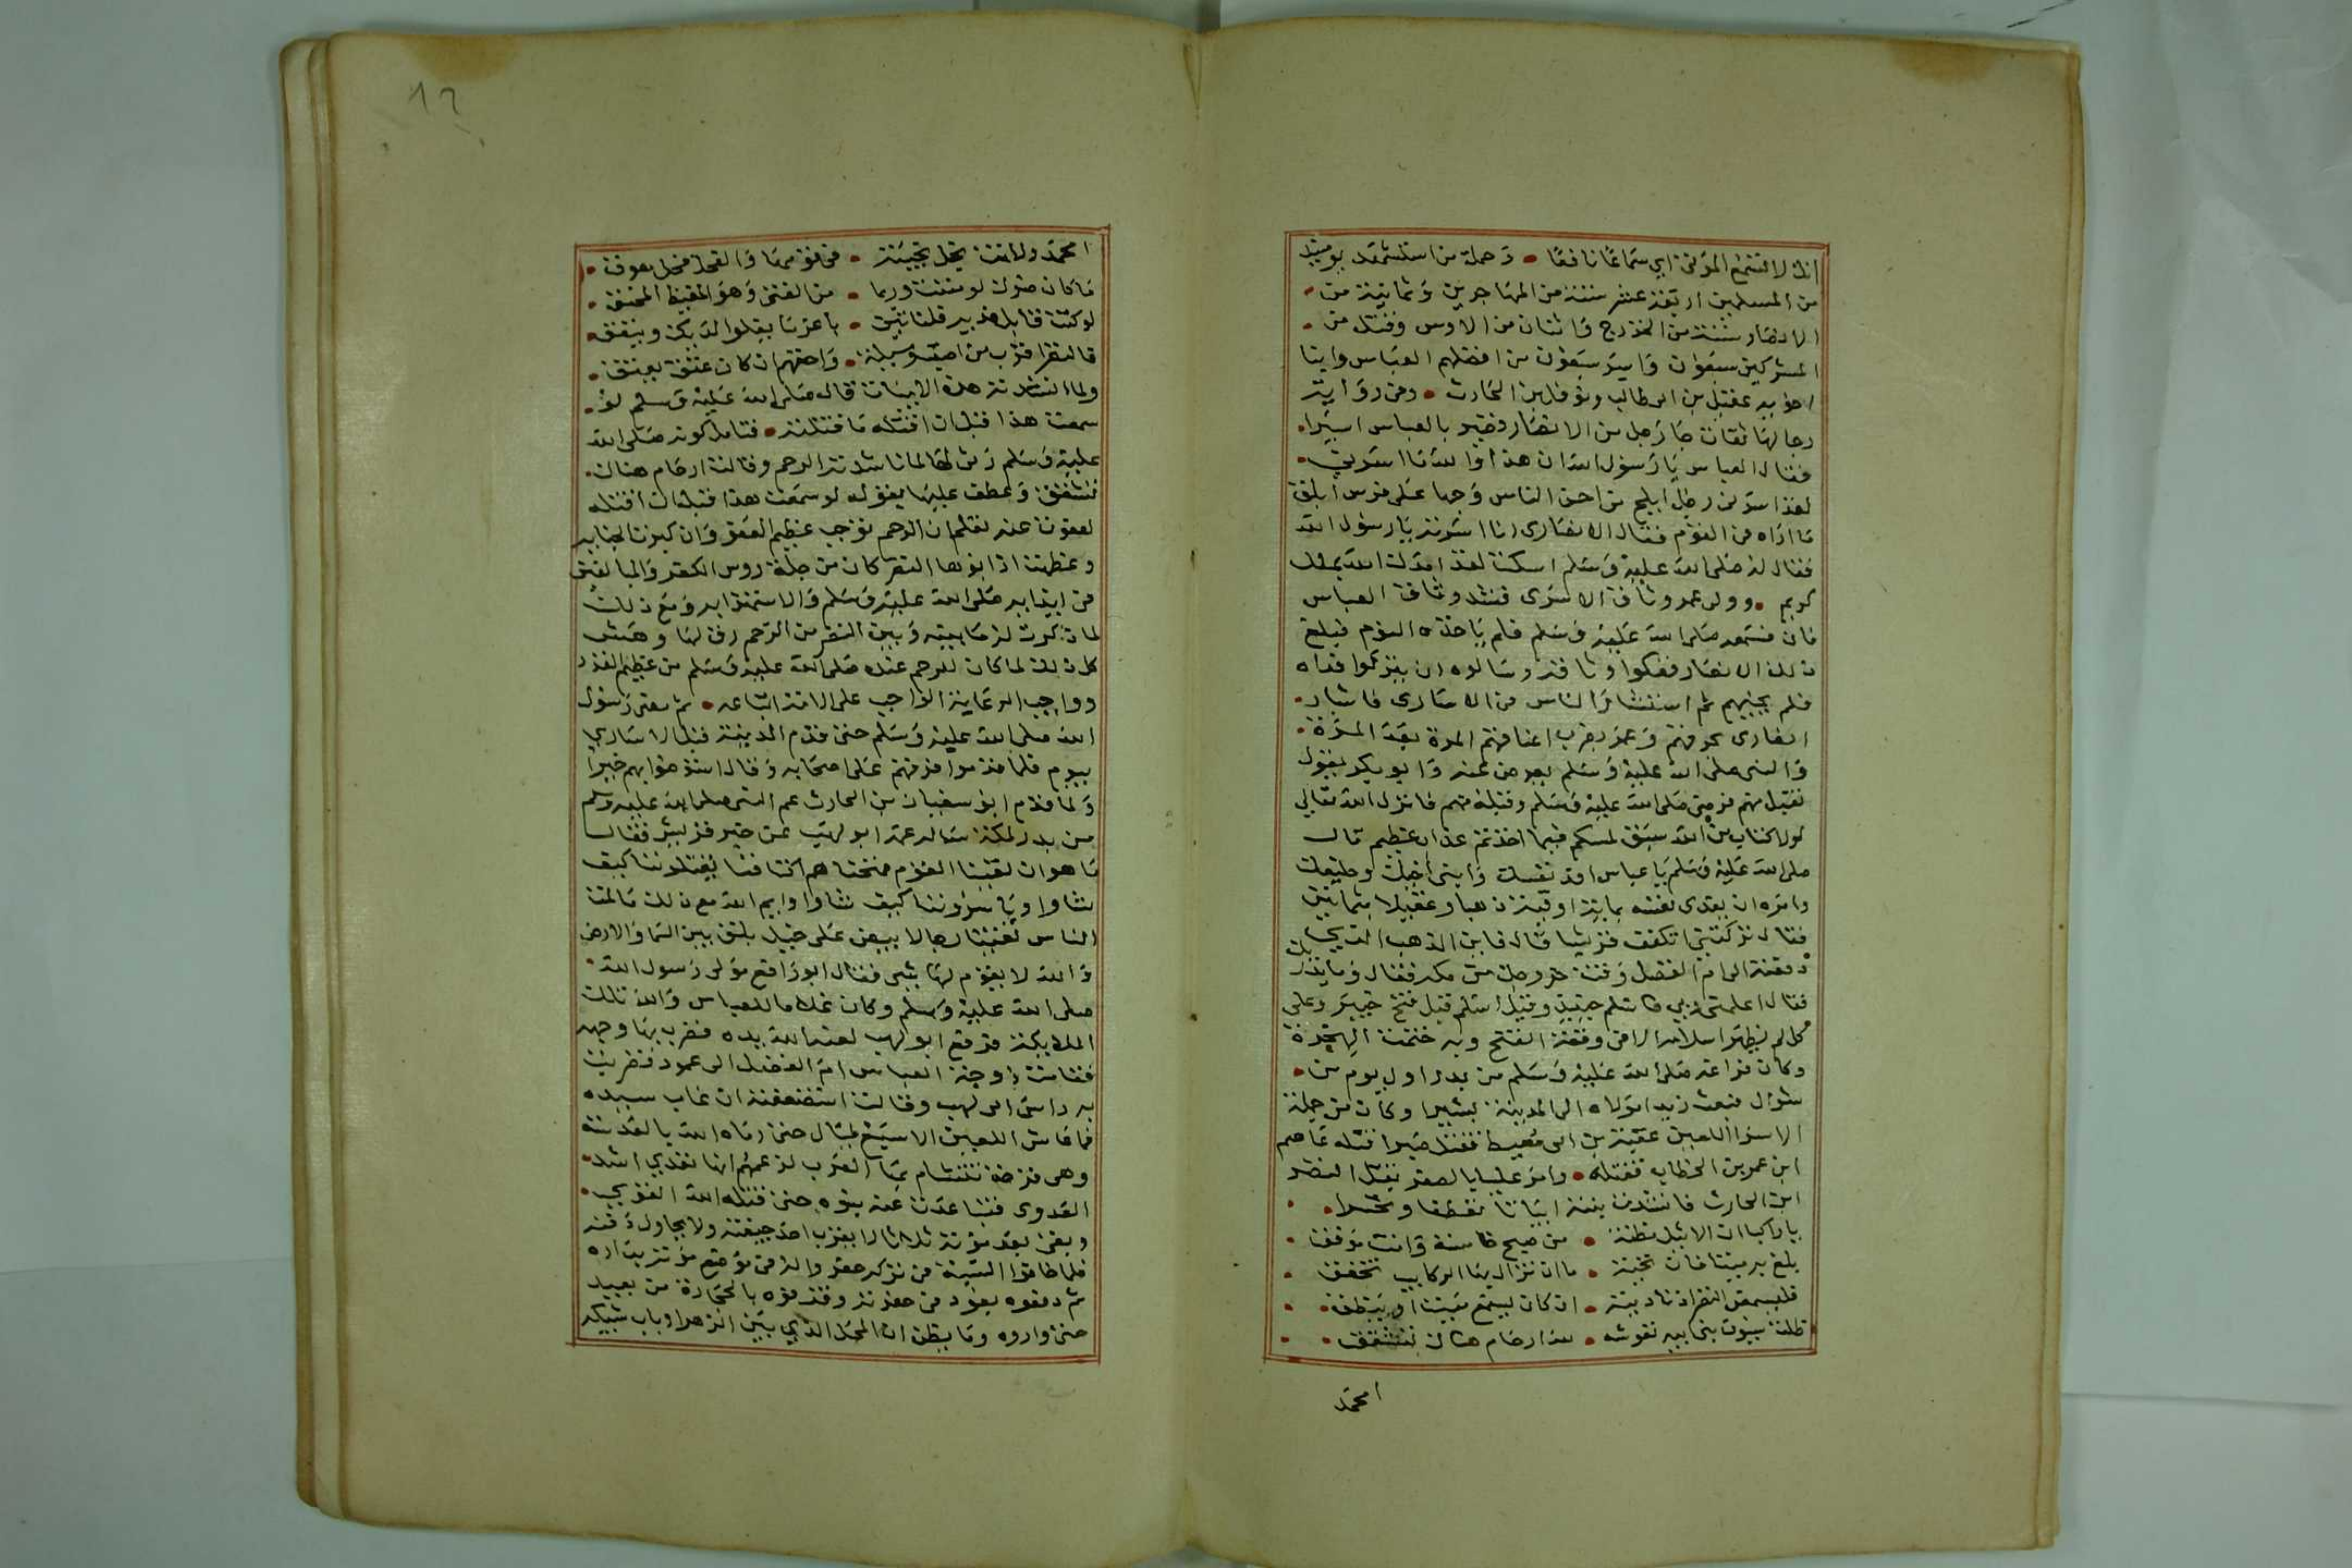 انك لا تسمع الموتى اي سماعا نافعا • وجملة من استشهد يوميذ
من المسلمين اربعة عشر ستة من المهاجرين وثمانية من •
الانصار ستة من الخزرج واثنان من الاوس وقتل من •
المشركين سبعون واسر سبعون من افضلهم العباس وابنا
اخويه عقيل بن ابي طالب ونوفل بن الحارث • وفي رواية
رجالها ثقات جا رجل من الانصار قصير بالعباس اسيرا •
فقال العباس يا رسول الله ان هذا والله ما اسرني •
لقد اسرني رجل ابلج من احسن الناس وجها على فرس ابلق
ما اراه في القوم فقال الانصاري انا اسرته يا رسول الله
فقال له صلى الله عليه وسلم اسكت لقد امدك الله بملك
كريم • وولى عمر وثاق الاسرى فشد وثاق العباس
فان فسمعه صلى الله عليه وسلم فلم ياخذه النوم فبلغ
ذلك الانصار ففكوا وثاقه وسالوه ان يتركوا فداه
فلم يجبهم ثم استشار الناس في الاسارى فاشار •
وعمر بضرب اعناقهم المرة بعد المرة •
والنبي صلى الله عليه وسلم يعرض عنه وابو بكر يقول
نقبل منهم فرضي صلى الله عليه وسلم وقبله منهم فانزل الله تعالى
لولا كتاب من الله سبق لمسكم فيما اخذتم عذاب عظيم قال
صلى الله عليه وسلم يا عباس افد نفسك وابني اخيك وحليفك
وامره ان يفدي نفسه بماية اوقية ذهبا وعقيلا بثمانين
فقال تركتني اتكفف قريشا قال فاين الذهب الذي
دفعته الى ام الفضل وقت خروجك من مكه فقال وما يدريك
فقال اعلمني ربي فاسلم حينيذ وقيل اسلم قبل فتح خيبر وعلى
كل لم يظهر اسلامه الا في وقعة الفتح وبه ختمت الهجرة
وكان فراغه صلى الله عليه وسلم من بدر اول يوم من •
شوال فبعث زيدا مولاه الى المدينة بشيرا وكان من جملة
الاسرا اللعين عقبة بن ابي معيط فقتل صبرا قتله عاصم
ابن عمر بن الخطاب فقتله • وامر عليا بالصفر بقتل النضر
ابن الحارث فانشدت بنته ابياتا •
يا راكبا ان الاثيل مظنة • من صبح خامسة وانت موفق •
بلغ به ميتا فان تحية • ما ان تزال بها الركايب تخفق •
فليسمعن النضر ان ناديته • ان كان يسمع ميتا او ينطق •
ظلت سيوف بني ابيه تنوشه • لله ارحام هناك تشقق •
امحمد
12
امحمد ولانت نجل نجيبة • في قومها والفحل فحل معرق •
ما كان ضرك لو مننت وربما • من الفتى وهو المغيظ المحنق •
لو كنت قابل فدية فلناتين • باعز ما يغلوا لديك وينفق •
فالنضر اقرب من اصبت وسيلة • واحقهم ان كان عتق يعتق •
ولما انشدته هذه الابيات قال صلى الله عليه وسلم لو •
سمعت هذا قبل ان اقتله ما قتلته • فتامل كونه صلى الله
عليه وسلم رق لها لما ناشدته الرحم وقالت ارحام هناك •
تشقق وعطف عليها بقوله لو سمعت هذا قبل ان اقتله
لعفوت عنه تعلم ان الرحم توجب عظيم العفو وان كبرت الجنايه
وعظمت اذ ابوها النضر كان من جملة روس الكفر والمبالغين
في ايذايه صلى الله عليه وسلم والاستهزا به ومع ذلك
لما ذكرت له ما بينه وبين النضر من الرحم رق لها وهش
كل ذلك لما كان للرحم عنده صلى الله عليه وسلم من عظيم القدر
وواجب الرعاية الواجب على الامة اتباعه • ثم مضى رسول
الله صلى الله عليه وسلم حتى قدم المدينة قبل الاسارى
بيوم فلما قدموا فرقهم على اصحابه وقال استوصوا بهم خيرا
ولما قدم ابو سفيان بن الحارث عم النبي صلى الله عليه وسلم
من بدر لمكة ساله عمه ابو لهب عن خبر قريش فقال
ما هو ان لقينا القوم فمنحناهم اكتافنا يقتلوننا كيف
شاوا وياسروننا كيف شاوا وايم الله مع ذلك مالمت
الناس لقينا رجالا بيض على خيل بلق بين السما والارض
والله لا يقوم لها شي فقال ابو رافع مولى رسول الله •
صلى الله عليه وسلم وكان غلاما للعباس والله تلك
الملايكة فرفع ابو لهب لعنه الله يده فضرب بها وجهه
فقامت زوجة العباس ام الفضل الى عمود فضربت
به راس ابي لهب وقالت استضعفته ان غاب سيده
فما عاش اللعين الا سبع ليال حتى رماه الله بالعدسة
وهي قرحة تتشام بها العرب لزعمهم انها تعدي اشد •
العدوى فتباعدت عنه بنوه حتى قتله الله القوي •
وبقى بعد موته ثلاثا لا يقرب احد جيفته ولا يحاول دفنه
فلما خافوا السبة في تركه حفروا له في موضع موته
ثم دفعوه بعود في حفرته وقذفوه بالحجارة من بعيد
حتى واروه وما يظن ان المحل الذي بين الزهرا وباب شبيكه